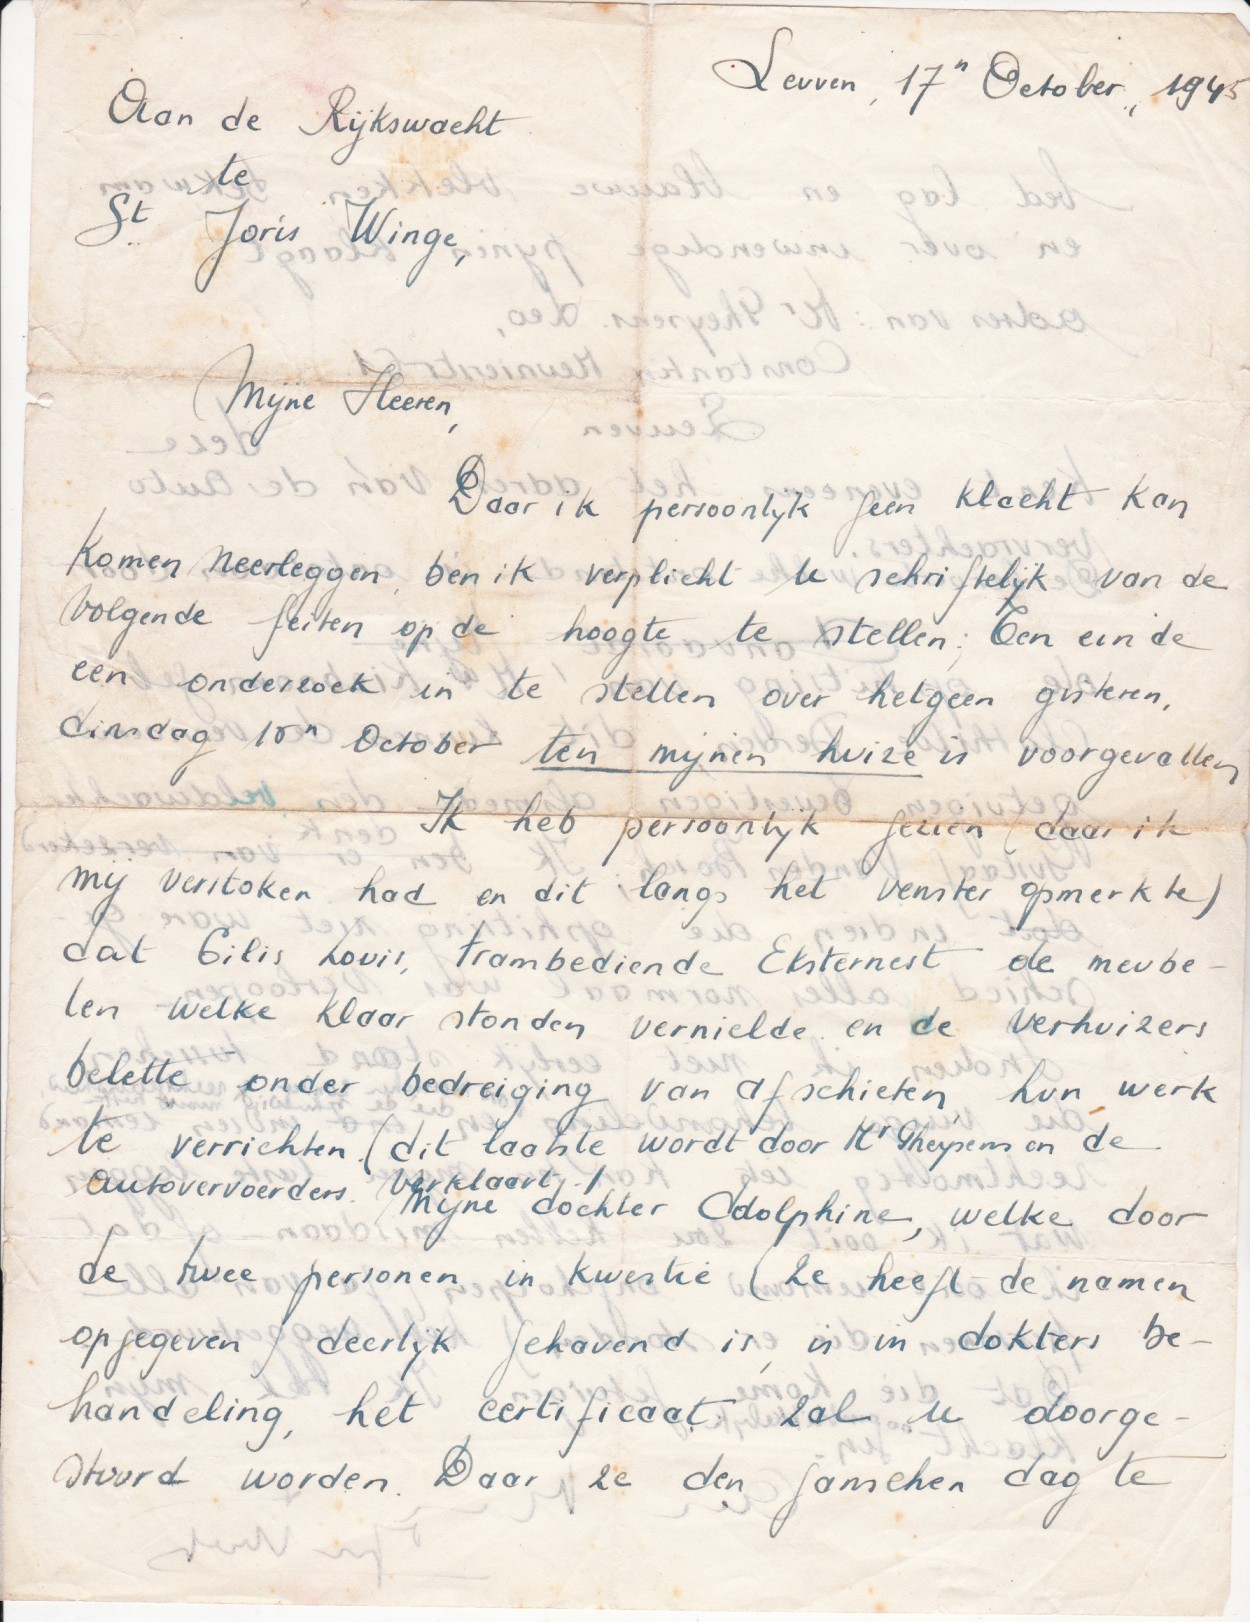 Leuven, 17n October, 1945
Aan de Rijkswacht
te
St Joris Winge,
Mijne Heeren,
Daar ik persoonlijk geen klacht kan
komen neerleggen, ben ik verplicht u schriftelijk van de
volgende feiten op de hoogte te stellen; Ten einde
een onderzoek in te stellen over hetgeen gisteren,
dinsdag 16n October ten mijnen huize is voorgevallen
Ik heb persoonlijk gezien (daar ik
mij verstoken had en dit langs het venster opmerkte)
dat Gilis Louis, trambediende Eksternest de meube-
len welke klaar stonden vernielde en de verhuizers
belette onder bedreiging van afschieten, hun werk
te verrichten. (dit laatste wordt door Mr Gheysens en de
autovervoerders verklaart.)
Mijne dochter Adolphine, welke door
de twee personen in kwestie (ze heeft de namen
opgegeven) deerlijk gehavend is, is in dokters be-
handeling, het certificaat zal u doorge-
stuurd worden. Daar ze den ganschen dag te